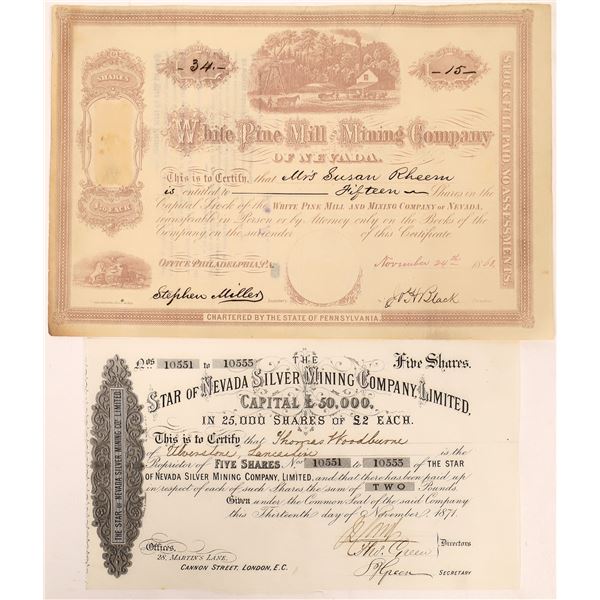 SHARES
- 34. -
- 15 -
White Pine Mill and Mining Company
OF NEVADA.
This is to Certify, that Mrs Susan Rheem
is entitled to Fifteen Shares in the
Capital Stock of the WHITE PINE MILL AND MINING COMPANY OF NEVADA,
transferable in Person or by Attorney only on the Books of the
Company on the surrender of this Certificate.
$10 EACH
STOCK FULL PAID, NO ASSESSMENTS
OFFICE PHILADELPHIA, PA.
November 24th 186
Stephen Miller
Black
CHARTERED BY THE STATE OF PENNSYLVANIA.
Nos 10551 to 10555 THE Five Shares.
STAR OF NEVADA SILVER MINING COMPANY, LIMITED.
CAPITAL £50,000.
IN 25,000 SHARES OF £2 EACH.
This is to Certify that Thomas Woodburne
of Ulverstone, Lancashire is the
Proprietor of FIVE SHARES, Nos 10551 to 10555 OF THE STAR
OF NEVADA SILVER MINING COMPANY, LIMITED, and that there has been paid up
in respect of each of such Shares the sum of TWO Pounds.
Given under the Common Seal of the said Company
this Thirteenth day of November 1871.
Directors
Green
Offices.
28, MARTIN'S LANE,
CANNON STREET, LONDON, E.C.
Green
SECRETARY
THE STAR OF NEVADA SILVER MINING CO. LIMITED.